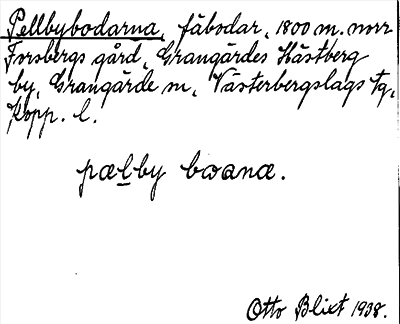 Pellbybodarna, fäbodar, 1800 m. nrr
Forsbergs gård, Grangärdes Hästberg
by, Grangärde sn, Västerbergslags tg,
Kopp. l.
pælby bωanæ.
Otto Blixt 1938.